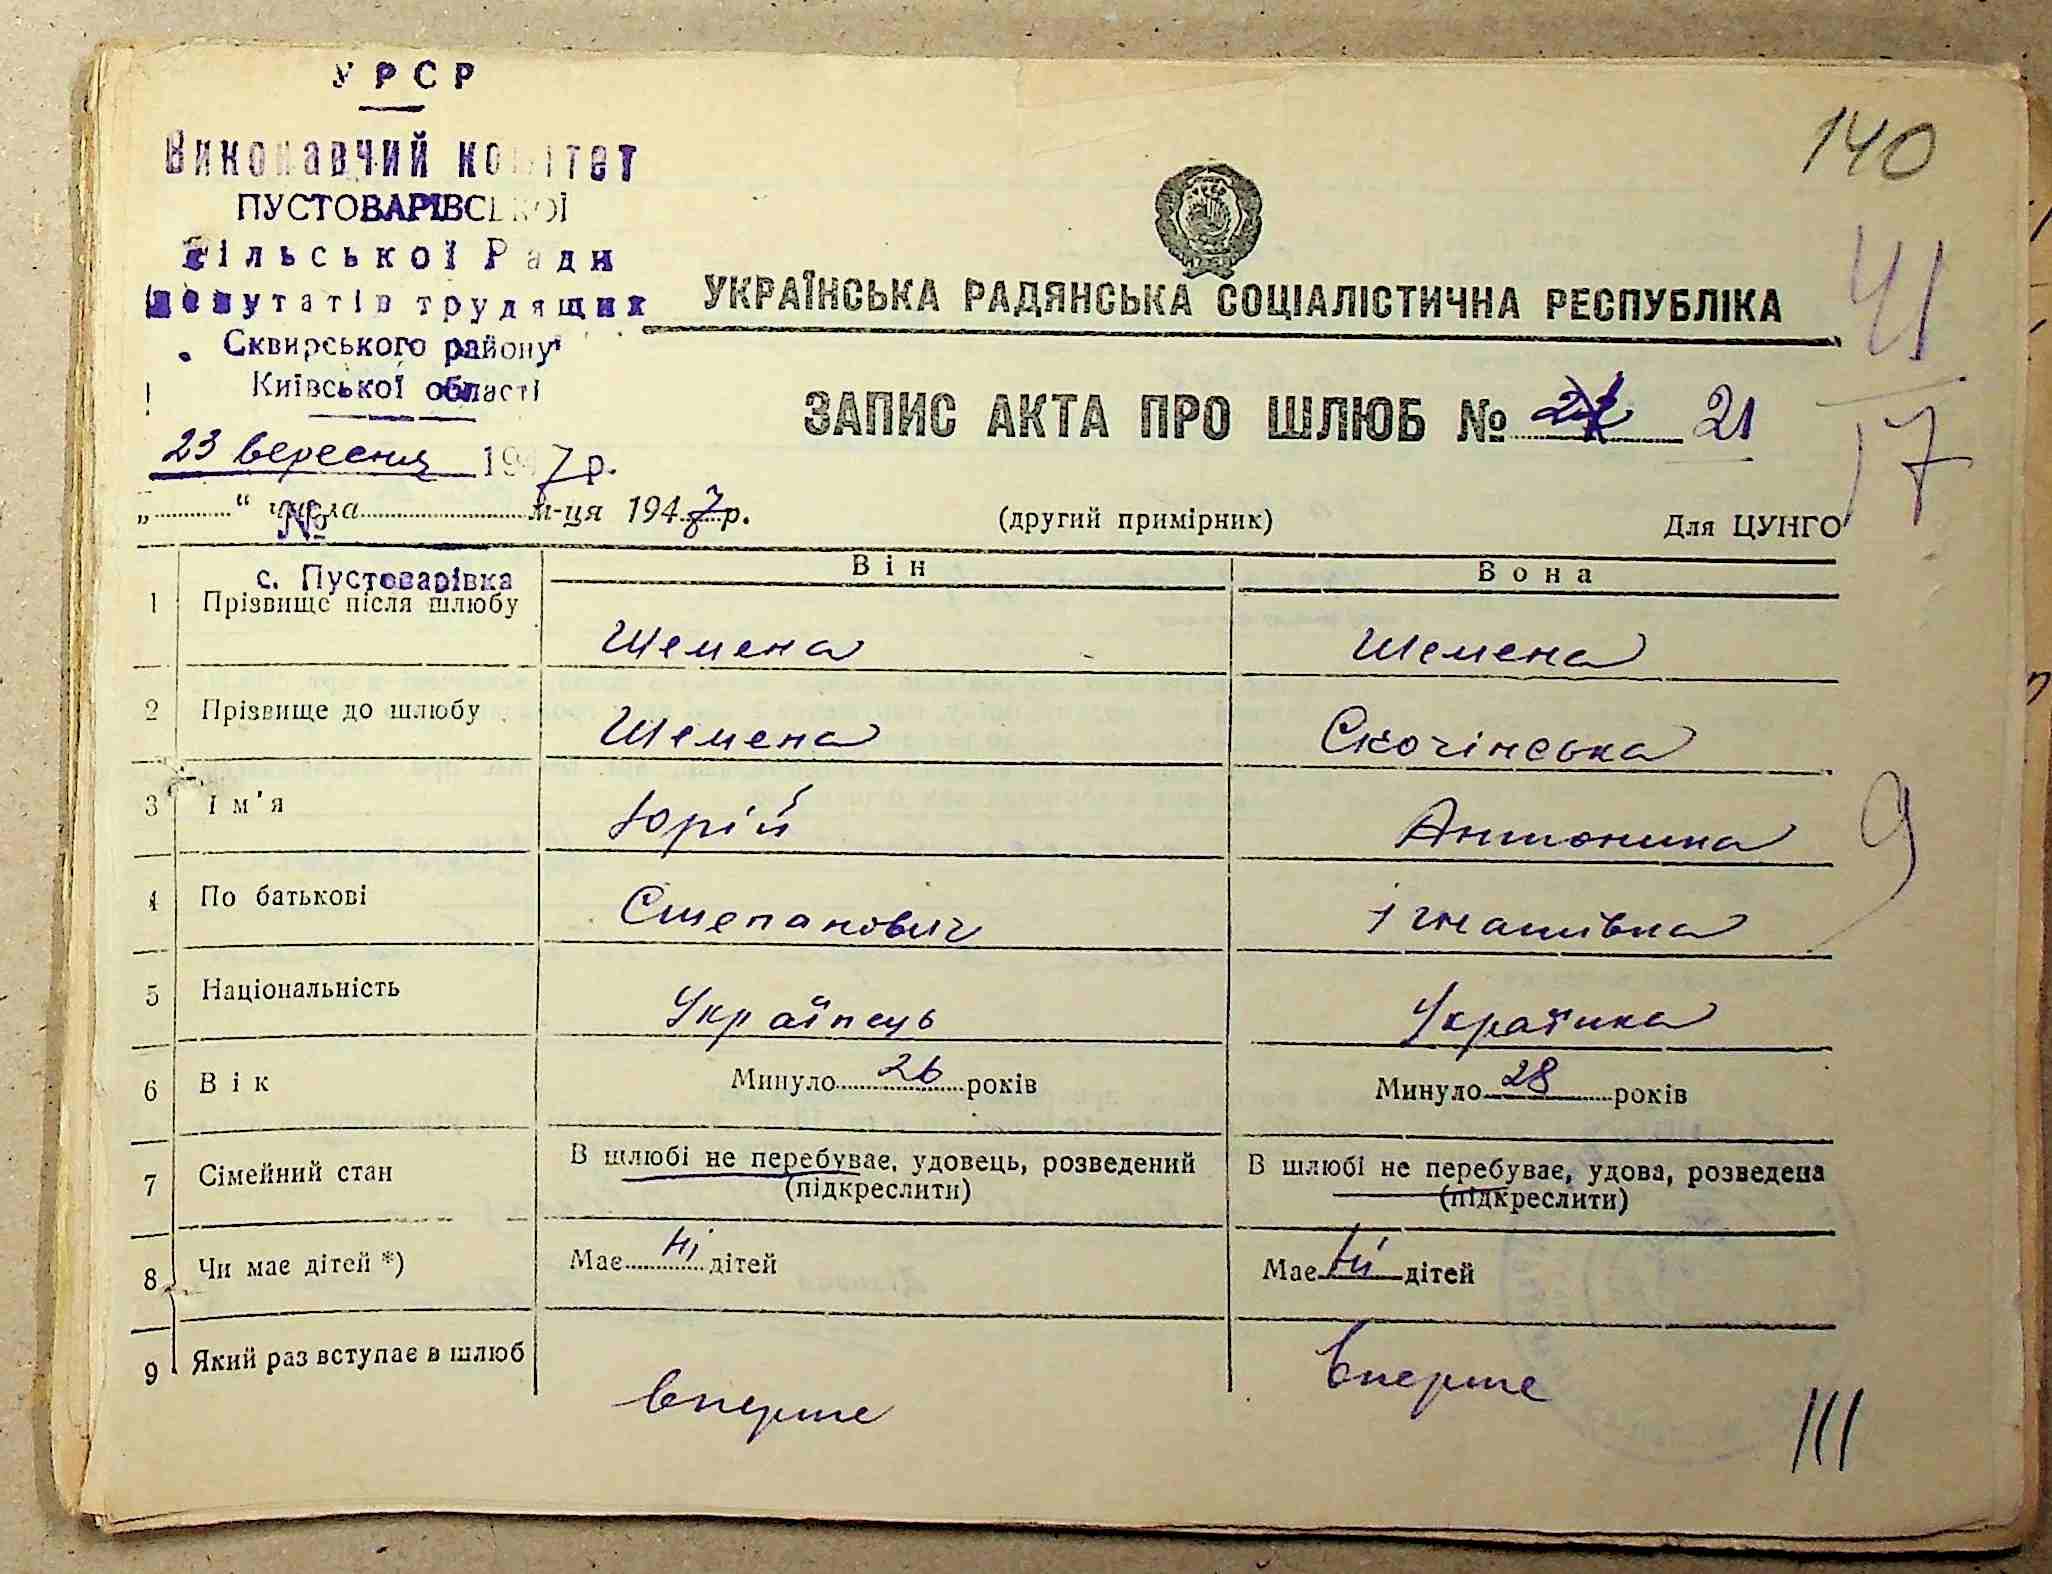 УРСР
Виконавчий комітет
ПУСТОВАРІВСЬКОЇ
Сільської Ради
депутатів трудящих
Сквирського району
Київської області
23 вересня 1947 р.
№
с. Пустоварівка
140
41
17
УКРАЇНСЬКА РАДЯНСЬКА СОЦІАЛІСТИЧНА РЕСПУБЛІКА
ЗАПИС АКТА ПРО ШЛЮБ № 21
„ “ числа м-ця 1947 р.
(другий примірник)
Для ЦУНГО
Він Вона
1 Прізвище після шлюбу Шемена Шемена
2 Прізвище до шлюбу Шемена Скочінська
3 Ім'я Юрій Антонина
4 По батькові Степанович Ігнатівна
5 Національність Українець Українка
6 Вік Минуло 26 років Минуло 28 років
7 Сімейний стан В шлюбі не перебуває, удовець, розведений В шлюбі не перебуває, удова, розведена
(підкреслити) (підкреслити)
8 Чи має дітей *) Має ні дітей Має ні дітей
9 Який раз вступає в шлюб вперше вперше
9
III